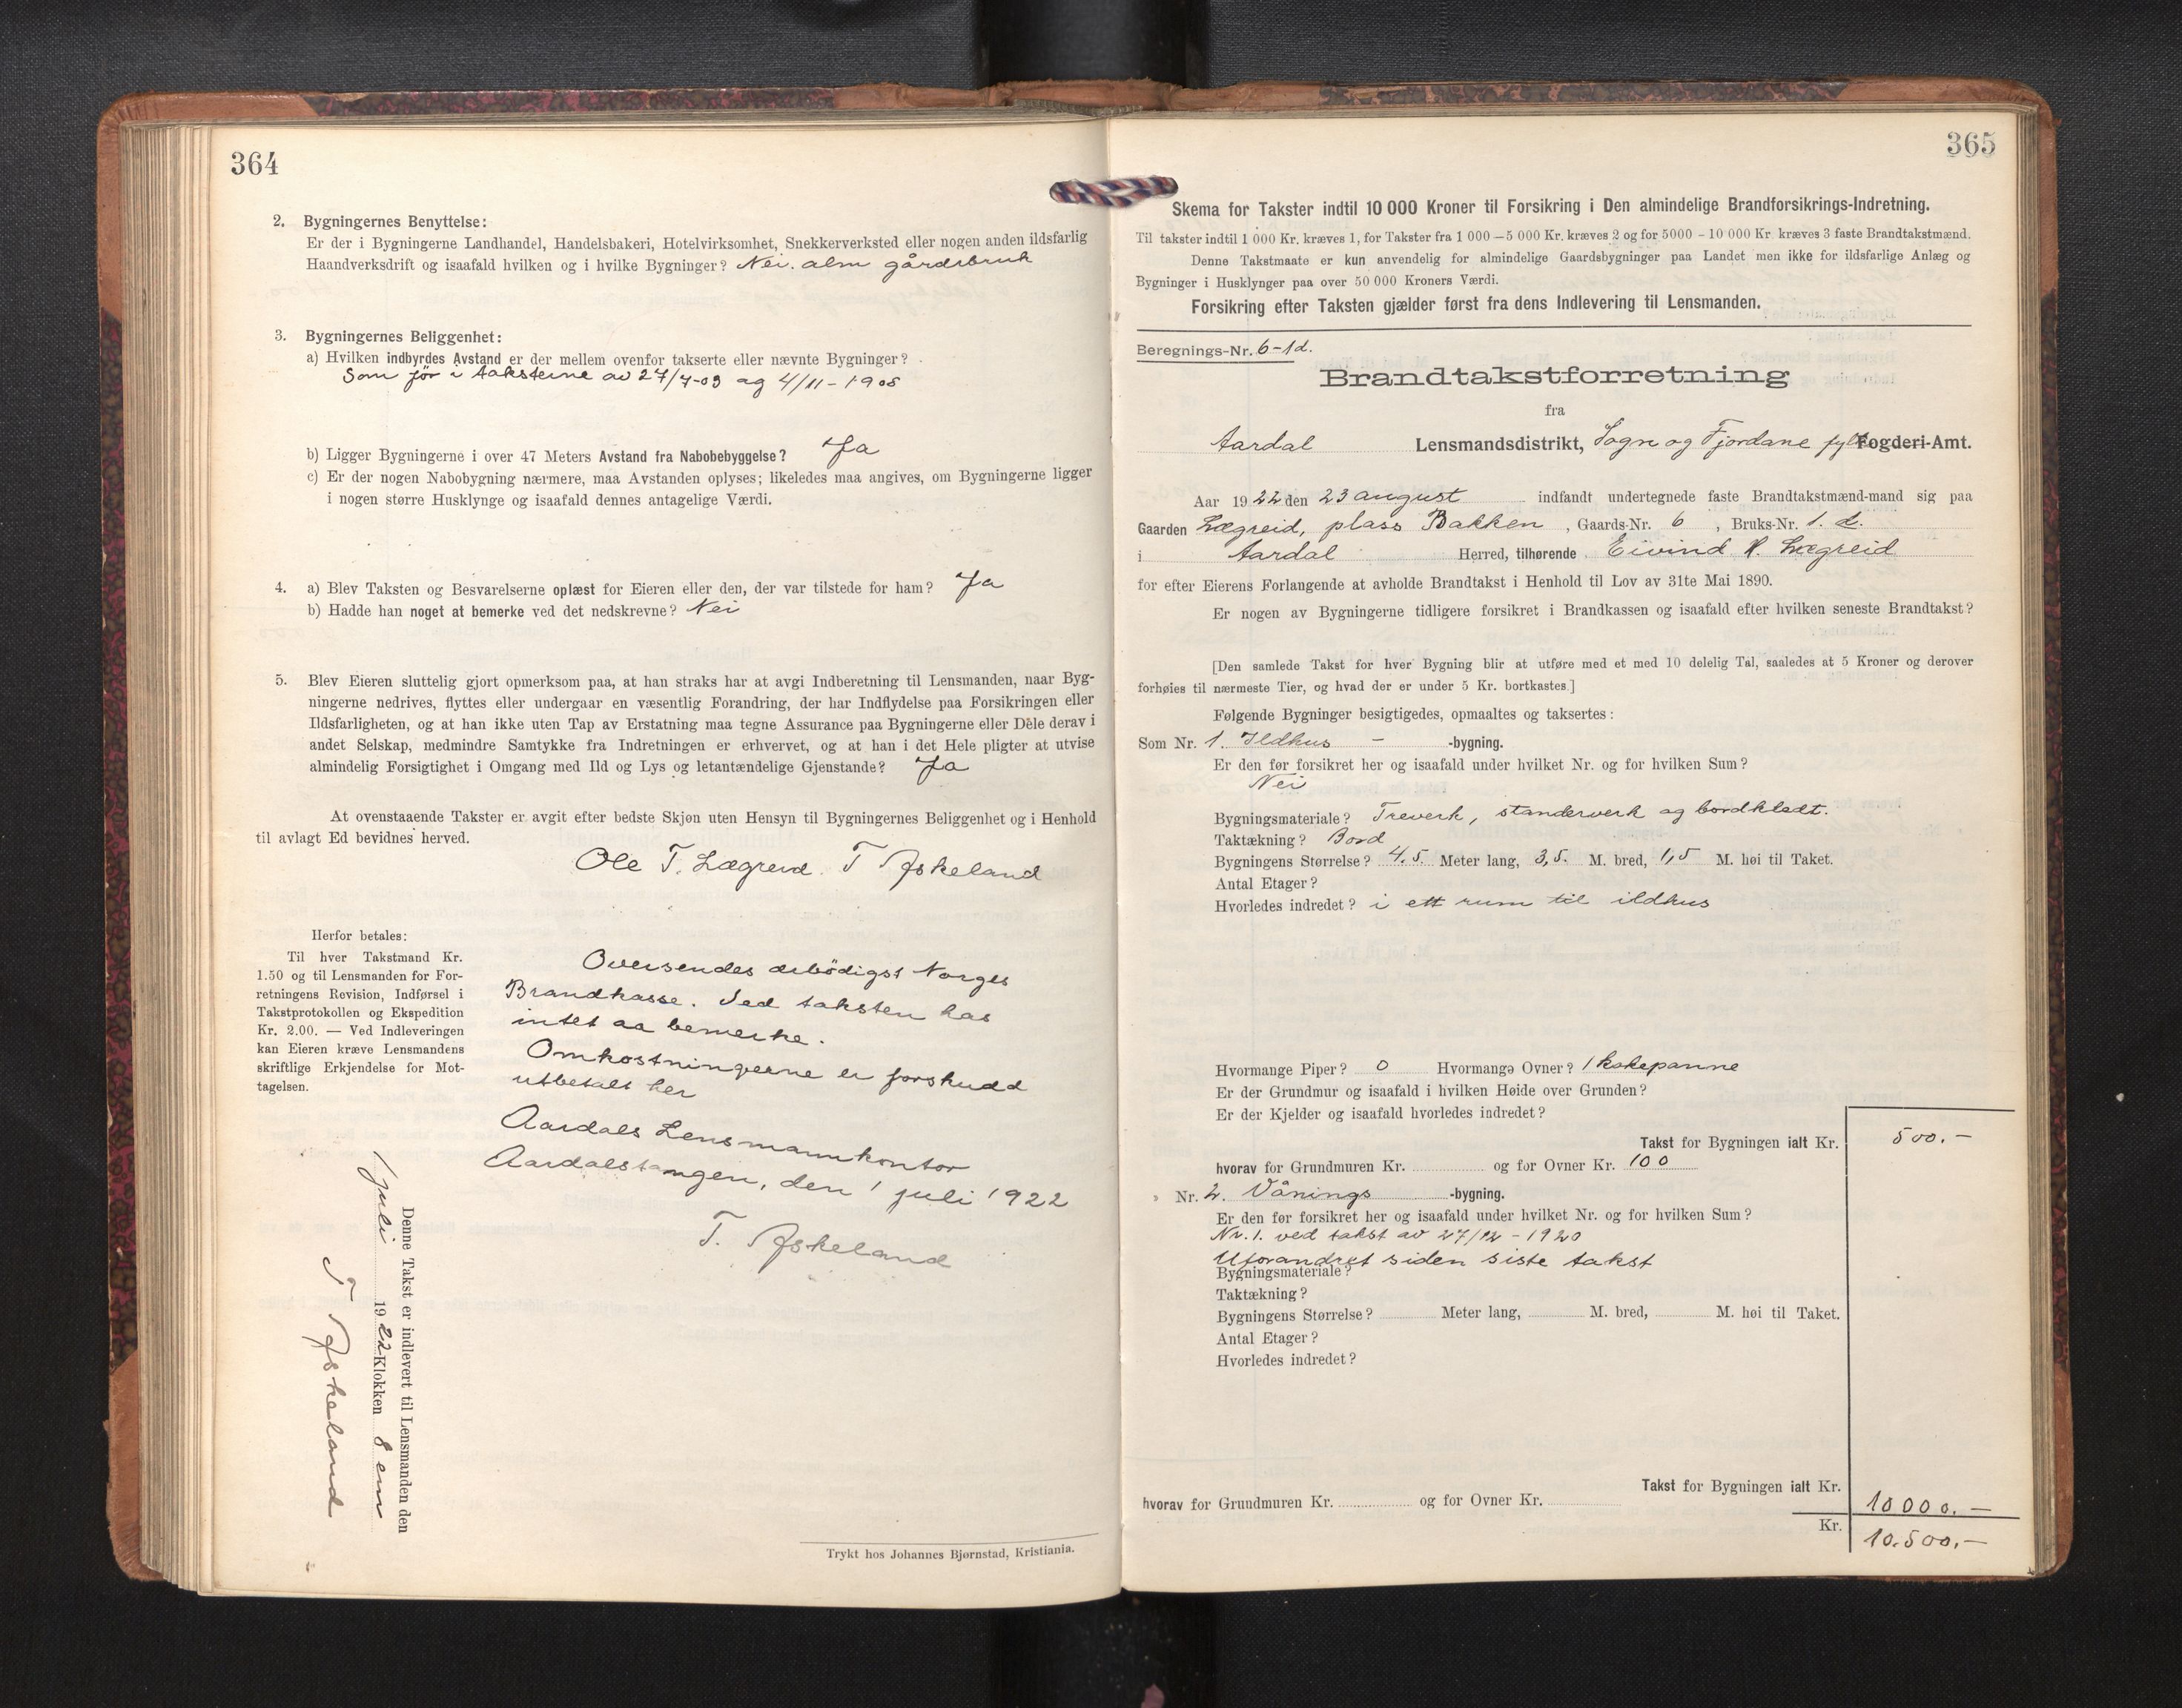 364
2. Bygningernes Benyttelse:
Er der i Bygningerne Landhandel, Handelsbakeri, Hotelvirksomhet, Snekkerverksted eller nogen anden ildsfarlig
Haandverksdrift og isaafald hvilken og i hvilke Bygninger? Nei. alm gårdsbruk
3. Bygningernes Beliggenhet:
a) Hvilken indbyrdes Avstand er der mellem ovenfor takserte eller nævnte Bygninger?
Som før i taksterne av 27/7-09 og 4/11-1908
b) Ligger Bygningerne i over 47 Meters Avstand fra Nabobebyggelse? Ja
c) Er der nogen Nabobygning nærmere, maa Avstanden oplyses; likeledes maa angives, om Bygningerne ligger
i nogen større Husklynge og isaafald dennes antagelige Værdi.
4. a) Blev Taksten og Besvarelserne oplæst for Eieren eller den, der var tilstede for ham? Ja
b) Hadde han noget at bemerke ved det nedskrevne? Nei
5. Blev Eieren sluttelig gjort opmerksom paa, at han straks har at avgi Indberetning til Lensmanden, naar Byg-
ningerne nedrives, flyttes eller undergaar en væsentlig Forandring, der har Indflydelse paa Forsikringen eller
Ildsfarligheten, og at han ikke uten Tap av Erstatning maa tegne Assurance paa Bygningerne eller Dele derav i
andet Selskap, medmindre Samtykke fra Indretningen er erhvervet, og at han i det Hele pligter at utvise
almindelig Forsigtighet i Omgang med Ild og Lys og letantændelige Gjenstande? Ja
At ovenstaaende Takster er avgit efter bedste Skjøn uten Hensyn til Bygningernes Beliggenhet og i Henhold
til avlagt Ed bevidnes herved.
Ole T. Lægreid. T Askeland
Herfor betales:
Til hver Takstmand Kr.
1.50 og til Lensmanden for For-
retningens Revision, Indførsel i
Takstprotokollen og Ekspedition
Kr. 2.00. — Ved Indleveringen
kan Eieren kræve Lensmandens
skriftlige Erkjendelse for Mot-
tagelsen.
Oversendes ærbödigst Norges
Brandkasse. Ved taksten has
intet aa bemerke.
Omkostningerne er forskudd
utbetalt her
Aardals Lensmannkontor
Aardalstangen, den 1 juli 1922
T. Askeland
Denne Takst er indlevert til Lensmanden den
1 juli 1922 Klokken 8 em
T Askeland
Trykt hos Johannes Bjørnstad, Kristiania.
365
Skema for Takster indtil 10 000 Kroner til Forsikring i Den almindelige Brandforsikrings-Indretning.
Til takster indtil 1 000 Kr. kræves 1, for Takster fra 1 000 — 5 000 Kr. kræves 2 og for 5000 - 10 000 Kr. kræves 3 faste Brandtakstmænd.
Denne Takstmaate er kun anvendelig for almindelige Gaardsbygninger paa Landet men ikke for ildsfarlige Anlæg og
Bygninger i Husklynger paa over 50 000 Kroners Værdi.
Forsikring efter Taksten gjælder først fra dens Indlevering til Lensmanden.
Beregnings-Nr. 6-1d.
Brandtakstforretning
fra
Aardal Lensmandsdistrikt, Sogn og Fjordane fylke Fogderi-Amt.
Aar 1922 den 23 august indfandt undertegnede faste Brandtakstmænd-mand sig paa
Gaarden Lægreid, plass Bakken, Gaards-Nr. 6, Bruks-Nr. 1. d.
i Aardal Herred, tilhørende Eivind H. Lægreid
for efter Eierens Forlangende at avholde Brandtakst i Henhold til Lov av 31te Mai 1890.
Er nogen av Bygningerne tidligere forsikret i Brandkassen og isaafald efter hvilken seneste Brandtakst?
[Den samlede Takst for hver Bygning blir at utføre med et med 10 delelig Tal, saaledes at 5 Kroner og derover
forhøies til nærmeste Tier, og hvad der er under 5 Kr. bortkastes.]
Følgende Bygninger besigtigedes, opmaaltes og taksertes:
Som Nr. 1. Ildhus - -bygning.
Er den før forsikret her og isaafald under hvilket Nr. og for hvilken Sum?
Nei
Bygningsmateriale? Treverk, standerverk og bordkledt.
Taktækning? Bord
Bygningens Størrelse? 4,5. Meter lang, 3,5. M. bred, 1,5 M. høi til Taket.
Antal Etager?
Hvorledes indredet? i ett rum til ildhus
Hvormange Piper? 0 Hvormange Ovner? 1 kokepanne
Er der Grundmur og isaafald i hvilken Høide over Grunden?
Er der Kjelder og isaafald hvorledes indredet?
Takst for Bygningen ialt Kr. 500.-
hvorav for Grundmuren Kr. og for Ovner Kr. 100
» Nr. 2. Vånings -bygning.
Er den før forsikret her og isaafald under hvilket Nr. og for hvilken Sum?
Nr. 1. ved takst av 27/12-1920
Uforandret siden siste takst
Bygningsmateriale?
Taktækning?
Bygningens Størrelse? Meter lang, M. bred, M. høi til Taket.
Antal Etager?
Hvorledes indredet?
Takst for Bygningen ialt Kr. 10000.-
hvorav for Grundmuren Kr. og for Ovner Kr.
Kr. 10.500.-